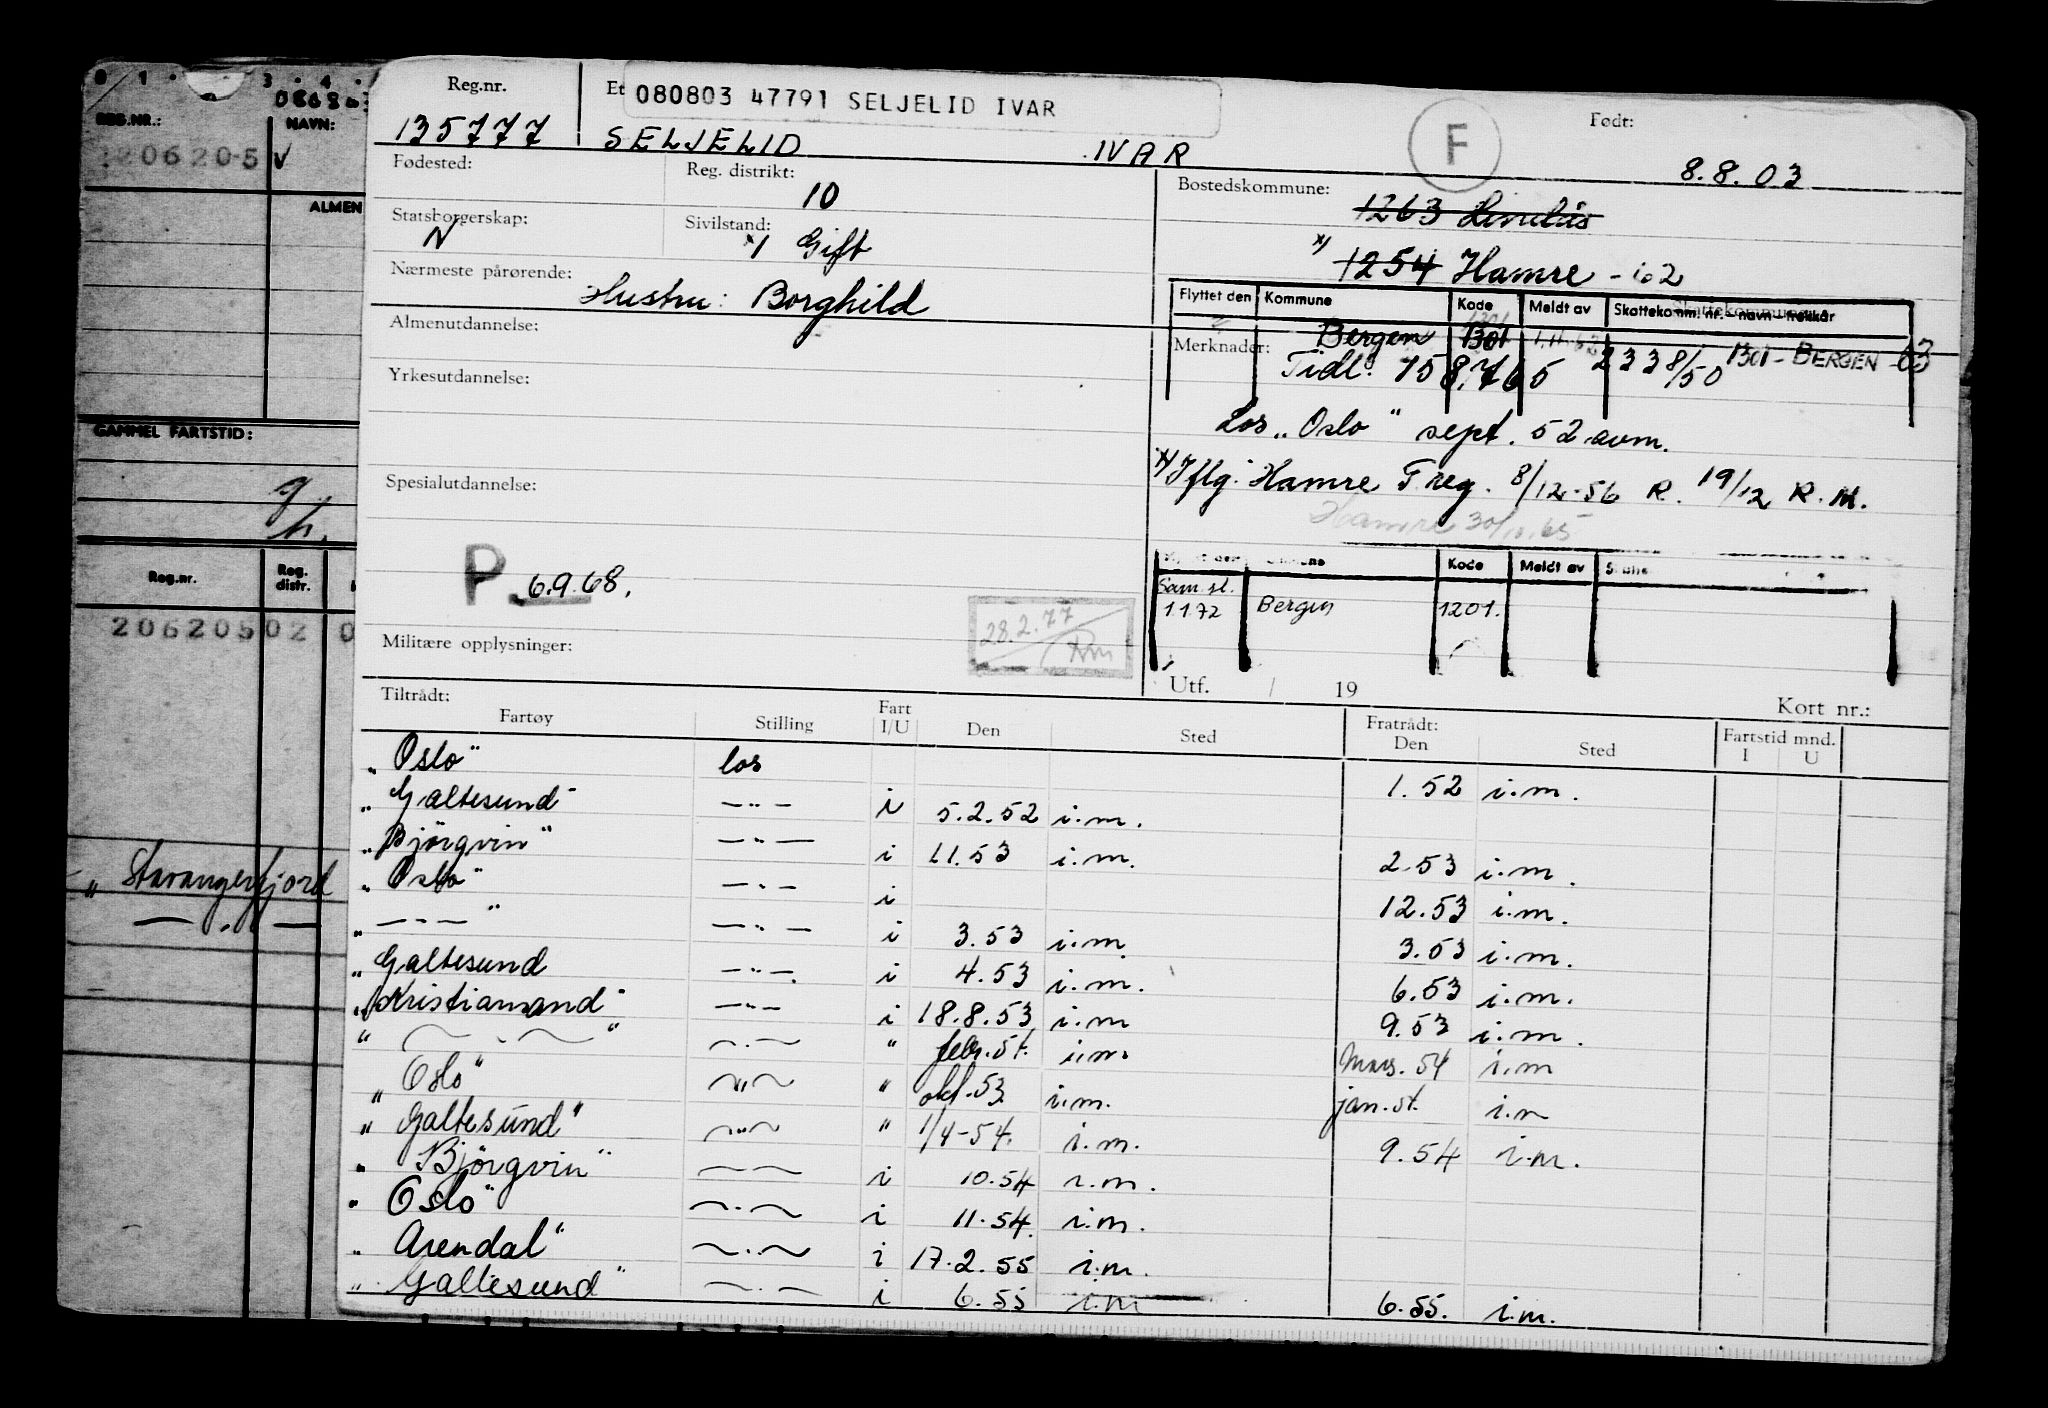 0 1 . 3 . 4 .
REG.NR.: NAVN:
120620-5 V
ALMEN
GAMMEL FARTSTID:
g.
h.
Reg.nr. Reg. distr.
20620502 0
" Stavangerfjord
— . —
Reg.nr. 135777
080803 47791 SELJELID IVAR
SELJELID IVAR
F
Født: 8.8.03
Fødested:
Reg. distrikt: 10
Bostedskommune: 1263 Lindås
x) 1254 Hamre - io2
Statsborgerskap: N
Sivilstand: x/ Gift
Nærmeste pårørende: Hustru: Borghild
Flyttet den Kommune Kode Meldt av Skattekomm. nr. – navn – trekkår
Bergen 1301 1301 - BERGEN 63
Almenutdannelse:
Merknader: Tidl. 758765 2338/50
Yrkesutdannelse:
Los „Oslo" sept. 52 avm.
x) Iflg. Hamre T reg. 8/12-56 R. 19/12 R.M.
Hamre 30/11.65
Spesialutdannelse:
P 6.9.68.
28.2.77
Kode Meldt av
Sam.sl. 1.1.72 Bergen 1201.
Militære opplysninger:
Utf. / 19 Kort nr.:
Tiltrådt: Fratrådt: Fartstid mnd.
Fartøy Stilling Fart I/U Den Sted Den Sted I U
„Oslo" los 1.52 i.m.
„Galtesund" —"— i 5.2.52 i.m.
„Björgvin" —"— i 1.1.53 i.m. 2.53 i.m.
„Oslo" —"— i 12.53 i.m.
„—"—" —"— i 3.53 i.m. 3.53 i.m.
„Galtesund —"— i 4.53 i.m. 6.53 i.m.
„Kristiansand" —"— i 18.8.53 i.m 9.53 i.m.
" — . — " — . — " febr.st. i.m. Mars. 54 i.m
„Oslo" —"— " okt.53 i.m. jan.st. i.m
„Galtesund" —"— " 1/4-54. i.m. 9.54 i.m.
„Björgvin" — — i 10.54 i.m.
„Oslo" — . — i 11.54 i.m.
„Arendal" — . — i 17.2.55 i.m.
„Galtesund" — . — i 6.55 i.m 6.55. i.m.